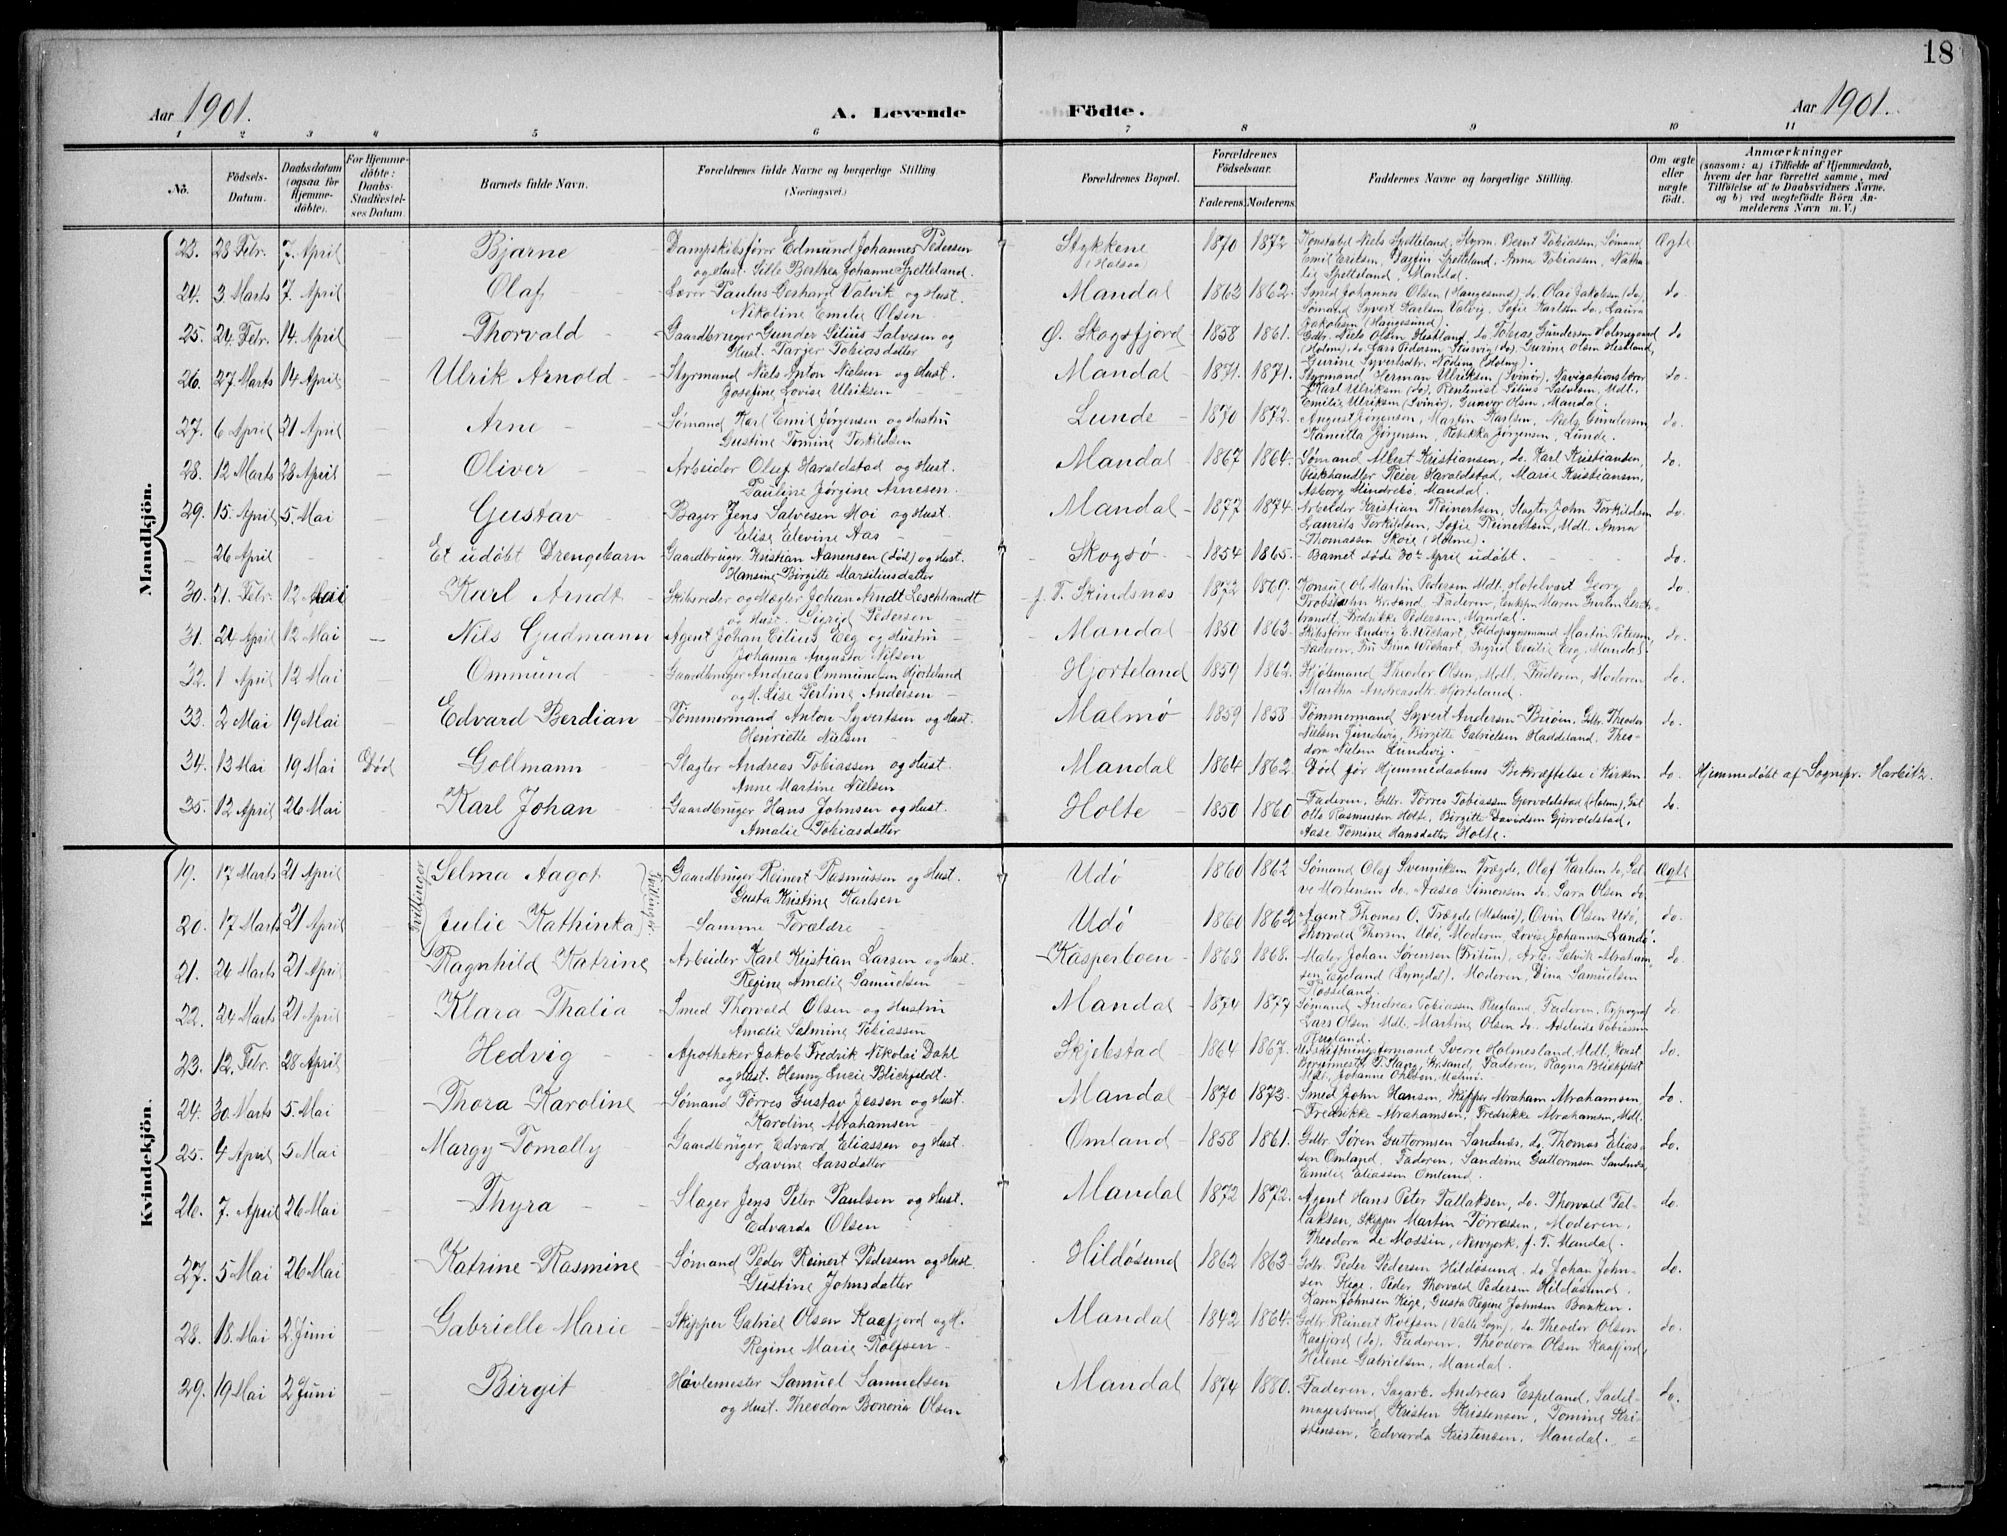 18
Aar 1901. A. Levende Födte. Aar 1901.
1 2 3 4 5 6 7 8 9 10 11
No. Födsels-Datum. Daabsdatum (ogsaa for Hjemmedöbte). For Hjemmedöbte: Daabs-Stadfæstelses Datum. Barnets fulde Navn. Forældrenes fulde Navne og borgerlige Stilling (Næringsvei.) Forældrenes Bopæl. Forældrenes Födselsaar. Faderens. Moderens. Faddernes Navne og borgerlige Stilling. Om ægte eller uægte födt. Anmærkninger (saasom: a) i Tilfælde af Hjemmedaab, hvem der har forrettet samme, med Tilföielse af to Daabsvidners Navne, og b) ved uægtefödte Börn Anmelderens Navn m. V.)
Mandkjön.
23. 28 Febr. 7. April Bjarne Dampskibsfører Edmund Johannes Pedersen Stykkene 1870 1872 Konstabel Niels Spetteland, Styrm. Bernt Tobiassen, Sømand Ægte
og Hust. Sille Berthea Johanne Spetteland. (Halsaa) Emil Eriksen, Spetteland, Anna Tobiassen, Natha-
lie Spetteland, Mandal.
24. 3 Marts 7 April Olaf Lærer Paulus Gerhard Valvik og Hust. Mandal 1863 1862. Smed Johannes Olsen (Haugesund), do. Olai Jakobsen (do), do.
Nikoline Emilie Olsen Sømand Syvert Karlsen Valvig, Sofie Karlsen do, Laura
Jakobsen (Haugesund).
25. 24 Febr. 14 April Thorvald Gaardbruger Gunder Silius Salvesen og Ø. Skogsfjord 1858 1861. Gdbr. Niels Olsen Hestland, do Tobias Gundersen do
Hust. Tarjer Tobiasdatter (Holme), do Lars Pedersen Stusvig (do), Gurine Olsen Hestland,
Gurine Syvertsdtr. (Holme).
26. 27 Marts 14 April Ulrik Arnold Styrmand Niels Anton Nielsen og Hust. Mandal 1871. 1871. Styrmand Herman Ulriksen (Svinør), Navigationslærer do.
Josefine Lovise Ulriksen Karl Ulriksen (do), Rentenist Silius Salvesen, Mdl.
Emilie Ulriksen (Svinør), Gunvor Olsen, Mandal.
27. 6 April 21 April Arne Sømand Karl Emil Jørgensen og Hustru Lunde 1870 1872. August Jørgensen, Martin Karlsen, Niels Gundersen do.
Gustine Tomine Torkildsen Jørgensen, Rebekka Jørgensen, Lunde.
28. 12 Marts 28 April Oliver Arbeider Oluf Haraldstad og Hust. Mandal 1867 1864. Sømand Albert Kristiansen, do. Karl Kristiansen, do.
Pauline Jørgine Arnesen. Fiskehandler Reier Haraldstad, Marie Kristiansen,
Asborg Mindrebø, Mandal.
29. 15. April 5. Mai Gustav Bager Jens Salvesen Moi og Hust. Mandal 1877 1874. Arbeider Kristian Reinertsen, Slagter John Torkildsen do.
Elise Elevine Aas Laurits Torkildsen, Sofie Reinertsen, Mdl. Anna
Thomassen Skoie (Holme).
26 April Et udøbt Drengebarn Gaardbruger Kristian Aanensen (død) og Hust. Skogsø 1854 1865. Barnet døde 30te April udøbt. do.
Hansine Birgitte Marsiliusdatter
30. 21. Febr. 12 Mai Karl Arndt Skibsreder og Mægler Johan Arndt Leschbrandt f. T. Skindsnæs 1872 1869. Konsul Ol. Martin Pedersen Mdl. Hotelvært Georg do.
og Hust. Sigrid Pedersen Krsand, Faderen, Enkefru Maren Gurine Lesch-
brandt, Fredrikke Pedersen, Mandal.
31. 24 April 12 Mai Nils Gudmann Agent Johan Eilius Eeg og Hustru Mandal 1850 1863. Skibsfører Ludvig E. Wichart, Toldopsynsmand Martin Petersen, do.
Johanna Augusta Nilsen Faderen, Fru Wichart, Ingrid Cecilie Eeg, Mandal.
32. 1 April 12 Mai Ommund Gaardbruger Andreas Ommundsen Hjorteland Hjorteland 1859 1862. Theodor Olsen, Mdl. Faderen, Moderen do.
og H. Lise Andersen Martha Andreasdtr. Hjorteland.
33. 2 Mai 19 Mai Edvard Berdian Tømmermand Anton Syvertsen og Hust. Malmø 1859 1858 Tømmermand Syvert Andersen Buøen, Gdbr. Theodor do.
Henriette Nielsen Nielsen Lundevig, Birgitte Gabrielsen Haddeland, Theo-
dora Nielsen Lundevig.
34. 13 Mai 19 Mai Død Gollmann Slagter Andreas Tobiassen og Hust. Mandal 1864 1862. Død før Hjemmedaabens Bekræftelse i Kirken do. Hjemmedøbt af Sognepr. Harbitz.
Anne Martine Nielsen
35. 12 April 26 Mai Karl Johan Gaardbruger Hans Johnsen og Hust. Holte 1850 1860 Faderen, Gdbr. Tørres Tobiassen Gjervoldstad (Holme), do.
Amalie Tobiasdatter Otto Rasmussen Holte, Birgitte Davidsen Gjervoldstad,
Aase Tomine Hansdatter Holte.
Kvindekjön.
19. 17 Marts 21 April Tvillinger Selma Aagot Tvillinger Gaardbruger Reinert Rasmussen og Hust. Udø 1860 1862 Sømand Olaf Svenniksen Trægde, Olaf Karlsen do, Sal- Ægte
Gusta Kristine Karlsen ve Mortensen do. Aasea Simonsen do. Sara Olsen do
20. 17 Marts 21 April Julie Kathinka Samme Forældre Udø 1860 1862 Agent Thomas O. Trægde (Malmø), Ovin Olsen Udø, do.
Thorvald Thorsen Udø, Moderen, Lovise Johannesen Landø.
21. 26 Marts 21 April Ragnhild Katrine Arbeider Karl Kristian Larsen og Hust. Kasperboen 1868 1868. Maler Johan Sørensen, Arb. Salvik Abraham- do.
Regine Amalie Samuelsen sen Egeland (Lyngdal). Moderen, Dina Samuelsen
Rosseland.
22. 24 Marts 21 April Klara Thalia Smed Thorvald Olsen og Hustru Mandal 1874 1877 Sømand Andreas Tobiassen Rugland, Faderen, Typograf do.
Amalie Salmine Tobiassen Lars Olsen Mdl. Martine Olsen do. Adelaide Tobiassen
Rugland.
23. 12. Febr. 28 April Hedvig Apotheker Jakob Fredrik Nikolai Dahl Skjebstad 1864 1867. Udskiftningsformand Sverre Holmesland, Mdl. Konst. do.
og Hust. Henny Lucie Blichfeldt. Borgermester T. Stang, Krsand, Faderen, Ragna Blichfeldt
Mdl. Johanne Ohlsen, Malmø.
24. 30 Marts 5 Mai Thora Karoline Sømand Tørres Gustav Jessen og Hust. Mandal 1870 1873. Smed John Hansen, Skipper Abraham Abrahamsen, do.
Karoline Abrahamsen Fredrikke Abrahamsen, Fredrikke Abrahamsen, Mdl.
25. 4 April 5 Mai Margy Tomally Gaardbruger Edvard Eliassen og Hust. Omland 1858 1861. Gdbr. Søren Guttormsen Sandnæs, do Thomas Elias- do.
Lavine Larsdatter sen Omland. Faderen, Sandrine Guttormsen Sandnæs,
Emilie Eliassen Omland.
26. 7. April 26 Mai Thyra Slager Jens Peter Paulsen og Hust. Mandal 1872 1872. Agent Hans Peter Tallaksen, do. Thorvald Tal- do.
Edvarda Olsen laksen, Skipper Martin Tørressen, Moderen,
Theodora de Massin, Newyork, f. T. Mandal.
27. 5 Mai 26 Mai Katrine Rasmine Sømand Peder Reinert Pedersen og Hust. Hildøsund 1862 1863 Gdbr. Peder Pedersen Hildøsund. do Johan John- do.
Gustine Johnsdatter sen Kige, Peder Thorvald Pedersen Hildøsund.
Karen Johnsen Kige, Gusta Regine Johnsen Banken.
28. 18. Mai 2 Juni Gabrielle Marie Skipper Gabriel Olsen Kaafjord og H. Mandal 1842 1864. Gdbr. Reinert Rolfsen (Valle Sogn), do. Theodor Olsen do.
Regine Marie Rolfsen. Kaafjord (do), Faderen, Theodora Olsen Kaafjord,
Helene Gabrielsen, Mandal.
29. 19 Mai 2 Juni Birgit Høvlemester Samuel Samuelsen Mandal 1874 1880. Faderen, Sagarb. Andreas Espeland, Sadel- do.
og Hust. Theodora Bonoria Olsen magersvend Kristen Kristensen, Tomine Kri-
stensen, Edvarda Kristensen, Mandal.